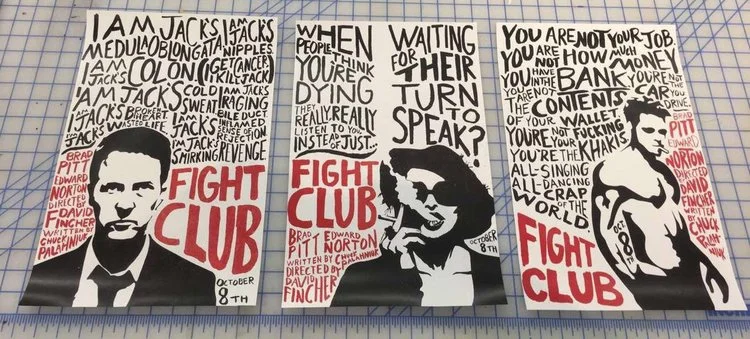 I AM JACK'S
MEDULLA OBLONGATA
I AM JACK'S
NIPPLES.
I AM
JACK'S COLON
(I GET CANCER
I KILL JACK)
I AM JACK'S
COLD
SWEAT
I AM JACK'S
BROKEN
HEART.
I AM JACK'S
RAGING
BILE DUCT.
I AM
JACK'S
WASTED LIFE.
I AM
JACK'S
INFLAMED
SENSE OF
REJECTION
I'M JACK'S
SMIRKING REVENGE.
BRAD
PITT
EDWARD
NORTON
DIRECTED
BY DAVID
FINCHER
WRITTEN BY
CHUCK
PALAHNIUK
FIGHT
CLUB
OCTOBER
8TH
WHEN
PEOPLE THINK
YOU'RE
DYING
THEY
REALLY, REALLY
LISTEN TO YOU
INSTEAD OF JUST...
WAITING
FOR THEIR
TURN
TO
SPEAK?
FIGHT
CLUB
BRAD
PITT
EDWARD
NORTON
WRITTEN BY CHUCK
PALAHNIUK
DIRECTED BY
DAVID
FINCHER
OCTOBER
8TH
YOU ARE NOT YOUR JOB.
YOU ARE
NOT HOW MUCH
MONEY
YOU HAVE
IN THE BANK.
YOU'RE NOT
THE
CAR YOU
DRIVE.
YOU ARE NOT
THE CONTENTS
OF YOUR WALLET.
YOU'RE NOT YOUR FUCKING
KHAKIS
YOU'RE THE
ALL-SINGING
ALL-DANCING
CRAP
OF THE
WORLD
BRAD
PITT
EDWARD
NORTON
DIRECTED
BY
DAVID
FINCHER
WRITTEN
BY
CHUCK
PALAHNIUK
OCT
8
TH
FIGHT
CLUB